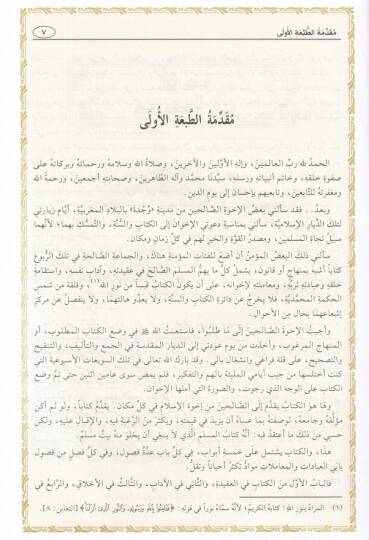 مُقَدِّمَةُ الطَّبْعَةِ الأُولَى
٧
مُقَدِّمَةُ الطَّبْعَةِ الأُولَى
الحمدُ لله ربِّ العالمينَ، وإلهِ الأوَّلينَ والآخرينَ، وصلاةُ الله وسلامهُ ورحماتهُ وبركاتهُ على
صفوةِ خلقهِ، وخاتمِ أنبيائهِ ورسلهِ، سيِّدنَا محمَّد وآله الطَّاهرينَ، وصحابتهِ أجمعينَ، ورحمةُ الله
ومغفرتهُ للتَّابعينَ، وتابعيهم بإحسان إلى يوم الدين.
وبعدُ.. فقد سألني بعضُ الإخوةِ الصَّالحينَ من مدينةِ «وُجْدَةَ» بالبلادِ المغربيَّةِ، أيَّامَ زيارتي
لتلكَ الدِّيارِ الإسلاميَّةِ، سألني بمناسبةِ دعوتي الإخوانَ إلى الكتابِ والسُّنَّةِ، والتَّمسُّكِ بهما؛ لأنَّهما
سبيلُ نجاةِ المسلمين، ومصدرُ القوَّةِ والخيرِ لهم في كلِّ زمانٍ ومكانٍ.
سألني ذلكَ البعضُ المؤمنُ أن أضعَ للفئاتِ المؤمنةِ هناكَ، والجماعةِ الصَّالحةِ في تلكَ الرُّبوعِ
كتابًا أشبهَ بمنهاجٍ أو قانونٍ، يشملُ كلَّ ما يهمُّ المسلمَ الصَّالحَ في عقيدتهِ، وآدابِ نفسهِ، واستقامةِ
خلقهِ وعبادتهِ لربِّهِ، ومعاملتهِ لإخوانه، على أن يكونَ الكتابُ قبسًا من نورِ اللهِ(١)، وفلقة من شمسِ
الحكمةِ المحمَّديَّةِ، فلا يخرجُ عن دائرةِ الكتابِ والسُّنَّةِ، ولا يعدُو هالتهمَا، ولا ينفصلُ عن مركزِ
إشعاعهمَا بحالٍ مِن الأحوالِ.
وأجبتُ الإخوةَ الصَّالحينَ إلى مَا طلبُوا، فاستعنتُ اللهَ ﷻ في وضعِ الكتابِ المطلوبِ، أو
المنهاجِ المرغوبِ، وأخذت من يومِ عودتي إلى الديارِ المقدسة في الجمعِ والتأليفِ، والتنقيحِ
والتصحيحِ، على قلة فراغي وانشغالِ بالي. وقد بارك الله تعالى في تلك السويعات الأسبوعية التي
كنت أختلسها من جيب أيامي المليئة بالهمِ والتفكيرِ، فلم يمض سوى عامين اثنين حتى تمَّ وضع
الكتاب على الوجه الذي رجوت، والصورة التي أملها الإخوان.
وهَا هوَ الكتابُ يقدَّمُ إلى الصَّالحينَ من إخوةِ الإسلامِ في كلِّ مكان. يقدَّمُ كتاباً، ولو لم أكن
مؤلِّفهُ وجامعهُ، لوصفتهُ بمَا عساهُ أن يزيدَ في قيمتهِ، ويكثِّرَ منَ الرَّغبةِ فيهِ، والإقبالِ عليهِ، ولكن
حسبي من ذلكَ ما أعتقدُ فيه: أنَّهُ كتابُ المسلمِ الَّذي لا ينبغي أن يخلوَ منهُ بيتُ مسلمٍ.
هذا، والكتاب يشتمل على خمسةِ أبوابٍ، في كلِّ بابٍ عدَّةُ فصولٍ، وفي كلِّ فصلٍ من فصولِ
بابي العباداتِ والمعاملاتِ موادُّ تكثرُ أحياناً وتقلُّ.
فالبابُ الأوَّلُ منَ الكتابِ في العقيدةِ، والثَّاني في الآدابِ، والثَّالثُ في الأخلاقِ، والرَّابعُ في
(١) المرادُ بنورِ اللهِ: كتابهُ الكريمُ؛ لأنَّهُ سمَّاهُ نوراً في قوله: ﴿فَـَٔامِنُواْ بِٱللَّهِ وَرَسُولِهِۦ وَٱلنُّورِ ٱلَّذِىٓ أَنزَلْنَا﴾ [التغابن: ٨].